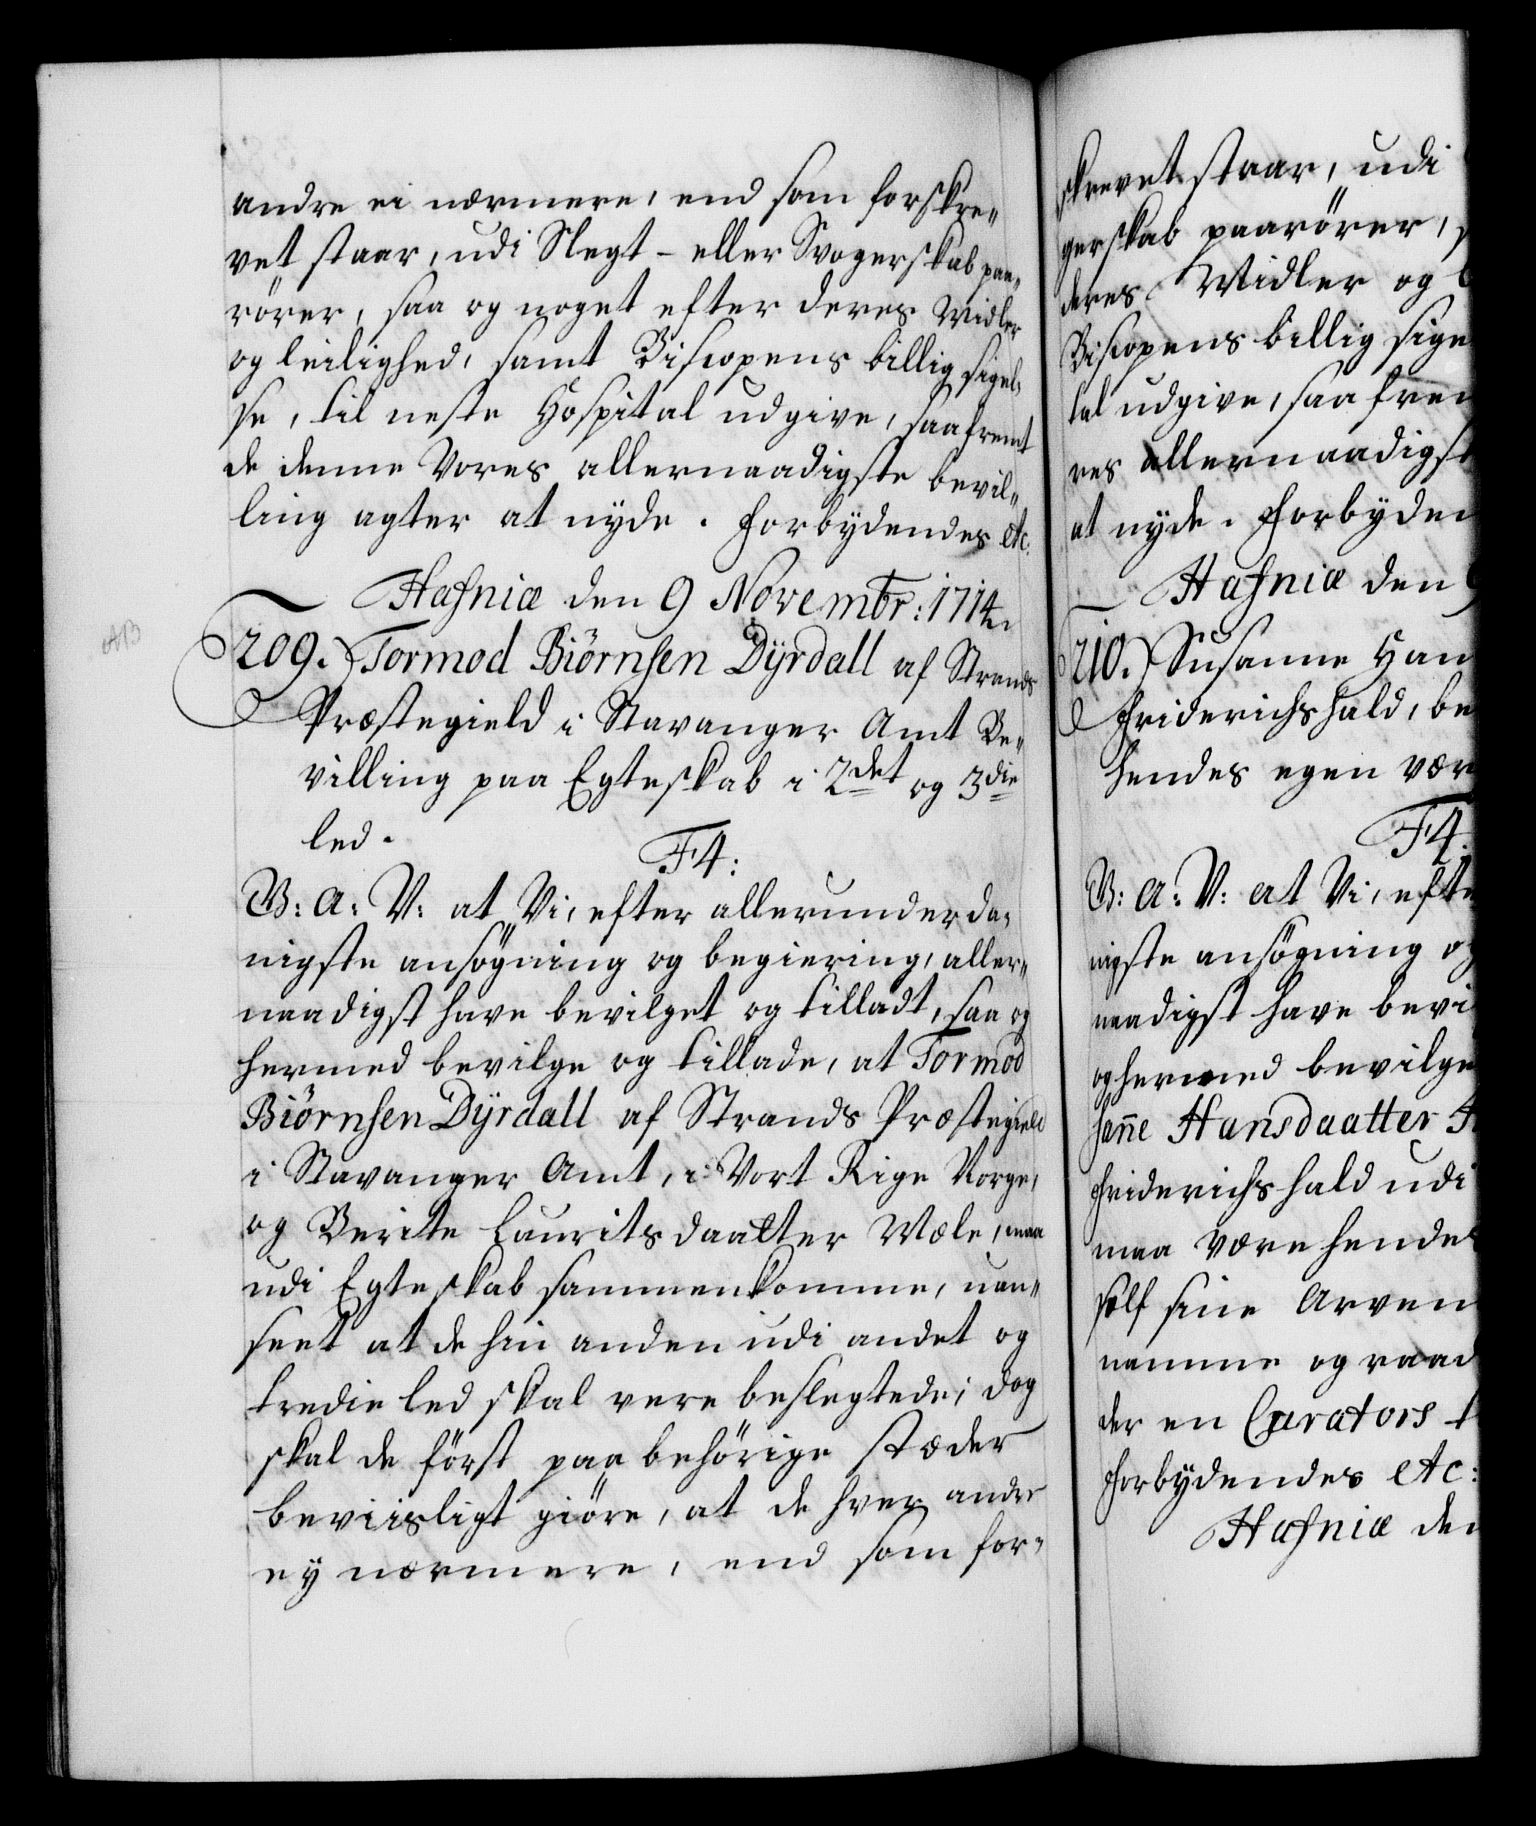 andre ei nærmere, end som forskre„
vet staar, udi Slegt- eller Svogerskab paa„
rörer, saa og noget efter deres Midler
og leilighed, samt Biscopens billig sigel„
se, til neste Hospital udgive, saafremt
de denne Vores allernaadigste bevil„
ling agter at nyde. Forbydendes etc.
Hafniæ den 9 Novembr: 1714.
209.) Tormod Biörnsen Dÿrdall af Strands
Præstegield i Stavanger Amt Be„
villing paa Egteskab i 2det og 3die
led.
F4:
V: A: V: at Vi, efter allerunderda„
nigste ansögning og begiering, aller„
naadigst have bevilget og tilladt, saa og
hermed bevilge og tillade, at Tormod
Biörnsen Dÿrdall af Strands Præstegield
i Stavanger Amt, i Vort Rige Norge,
og Berite Lauritsdaatter Mæle, maa
udi Egteskab sammenkomme, uan„
seet at de hin anden udi andet og
tredie led skal vere beslegtede; dog
skal de först paa behörige stæder
beviisligt giöre, at de hver andre
ey nærmere, end som for„
skrevet staar, udi
gerskab paarörer, s
deres Midler og l
Biscopens billig sige
tal udgive, saa frem
res allernaadigst
at nyde. Forbyden
Hafniæ den 9
210.) Susanne Han
Friderichshald, be
hendes egen vær
F4.
V: A: V: at Vi, efte
nigste ansögning og
naadigst have bevi
og hermed bevilge
sañe Hansdaatter
Friderichshald udi
maa være hendes
self sine Arven
namme og raad
der en Curators
Forbydendes etc:
Hafniæ den